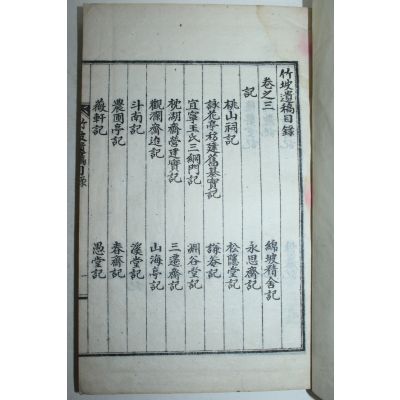 竹坡遺稿目錄
卷之三
記
綿坡精舍記
桃山祠記
永思齋記
詠花亭移建舊墓實記
松隱堂記
宜寧玉氏三綱門記
謙菴記
枕湖齋營建實記
淵谷堂記
觀瀾齋追記
三遷齋記
斗南記
山海亭記
農圃亭記
溪堂記
薇軒記
春齋記
愚堂記
竹坡遺稿目錄
一